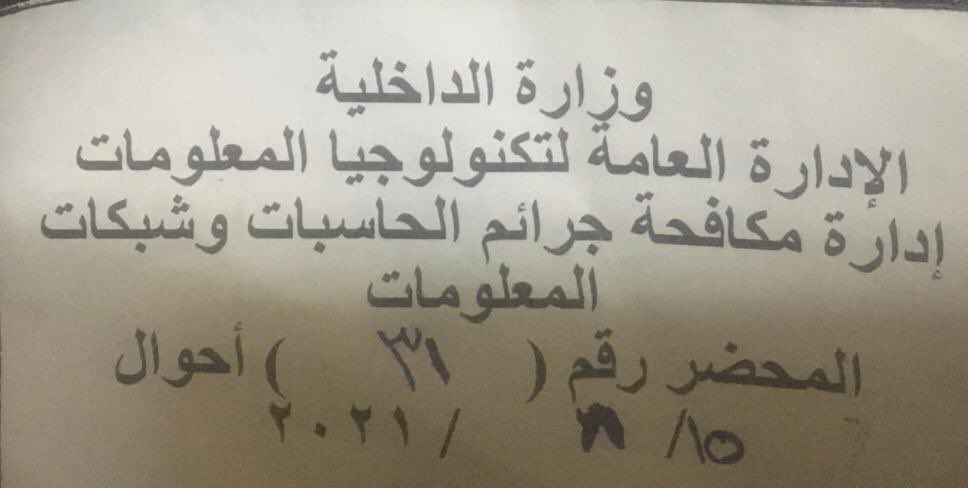 وزارة الداخلية
الإدارة العامة لتكنولوجيا المعلومات
إدارة مكافحة جرائم الحاسبات وشبكات
المعلومات
المحضر رقم ( ٣١ ) أحوال
١٥/ / ٢٠٢١